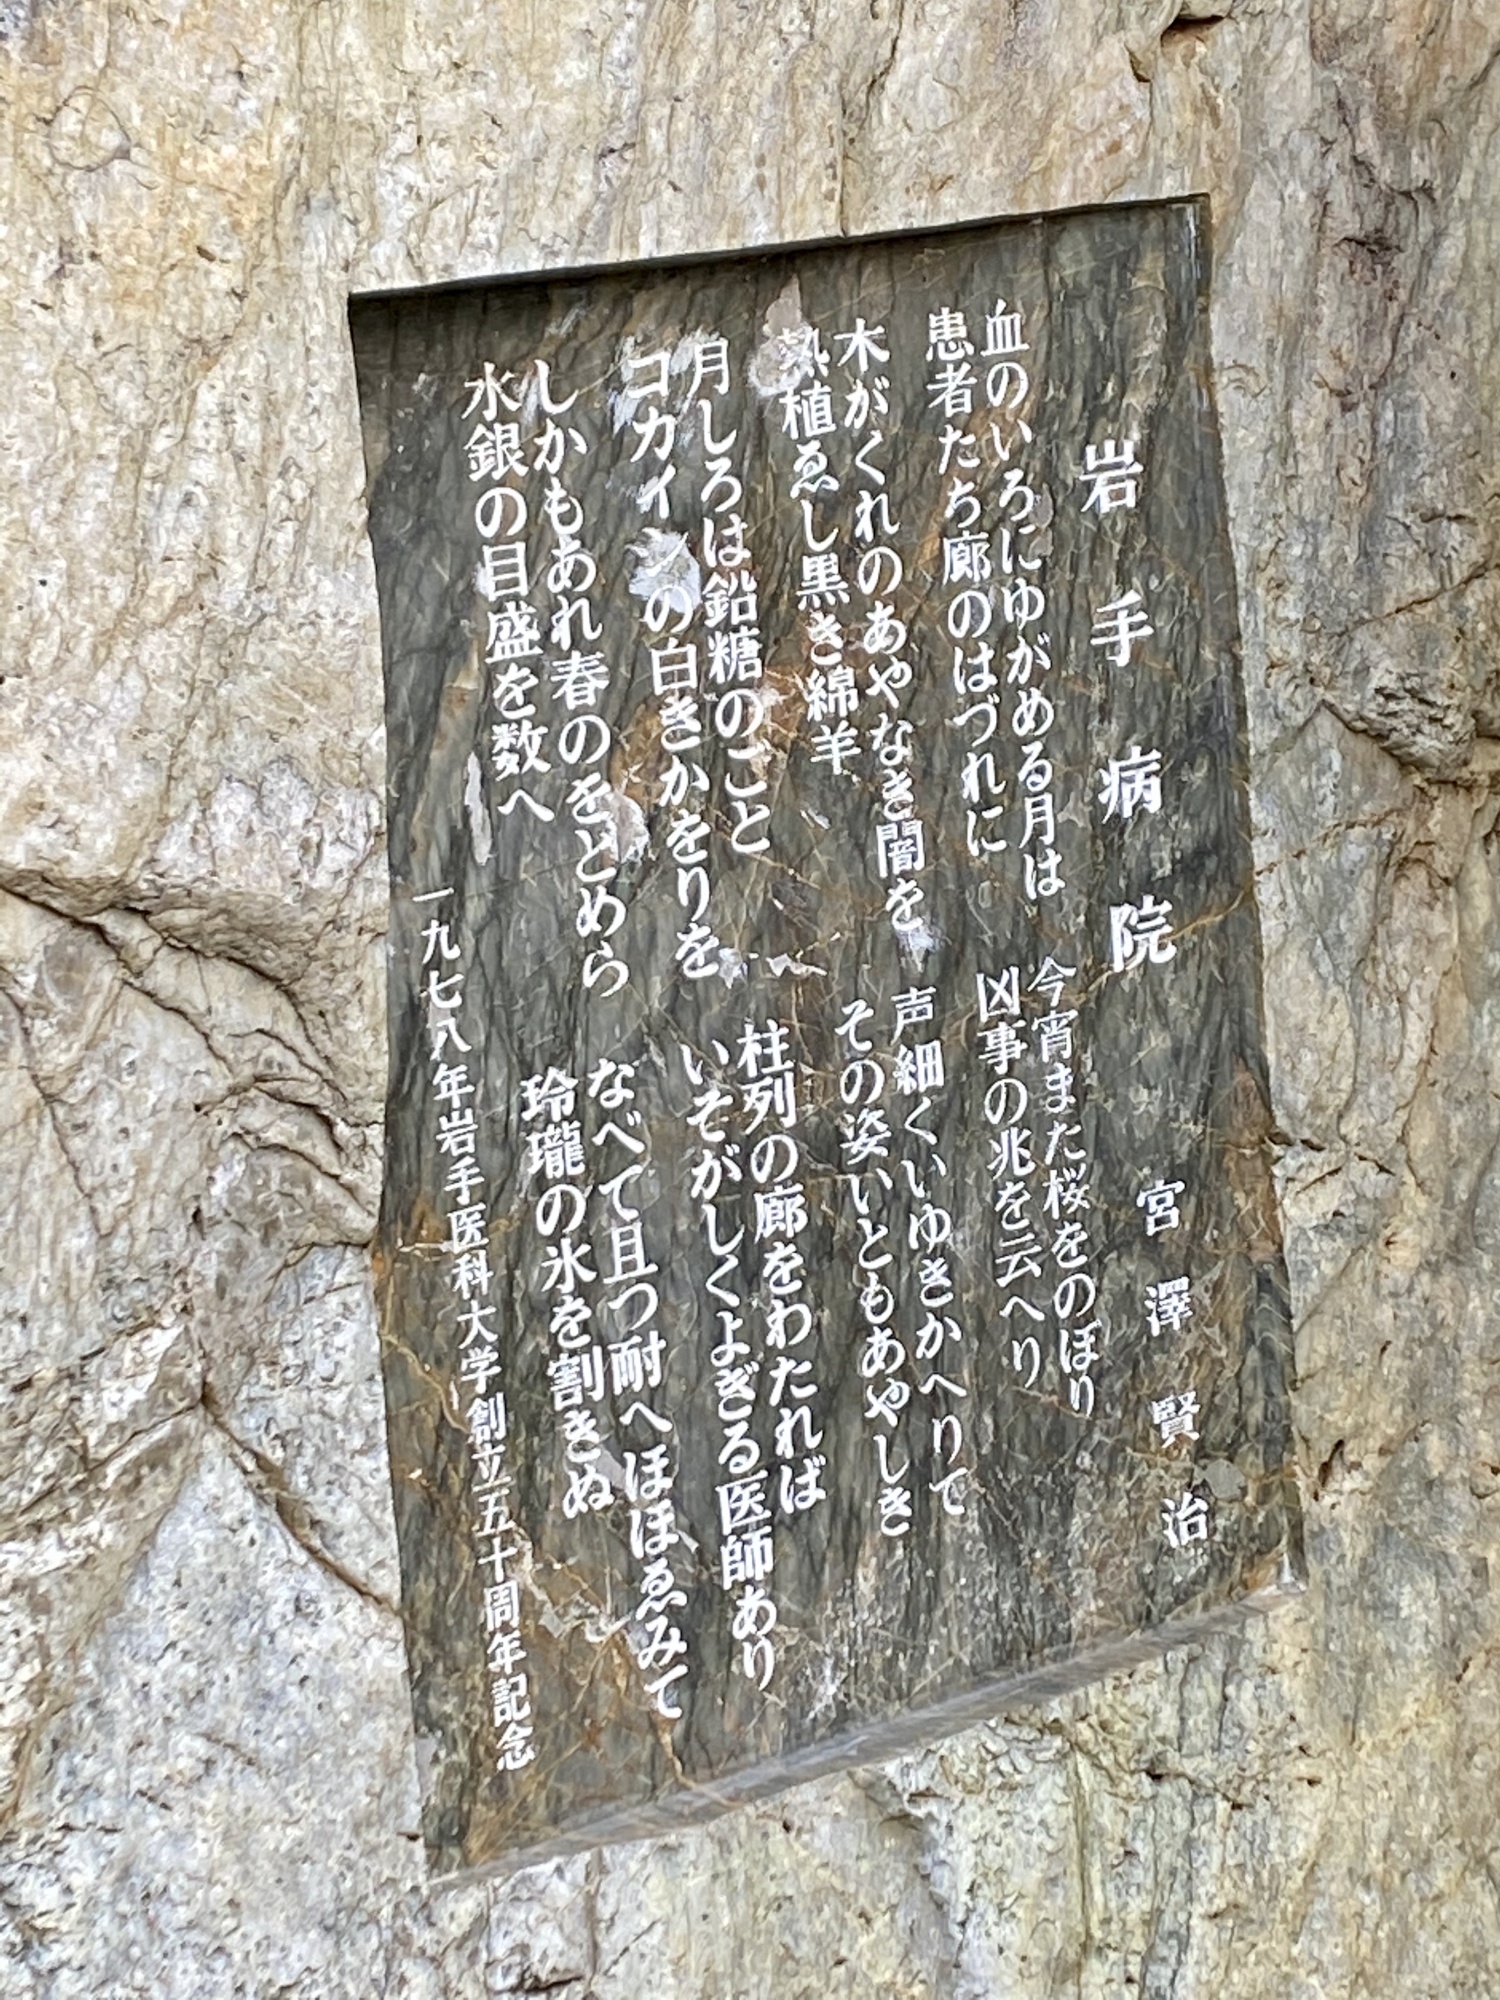 岩手病院
宮澤賢治
血のいろにゆがめる月は
今宵また桜をのぼり
患者たち廊のはづれに
凶事の兆を云へり
木がくれのあやなき闇を
声細くいゆきかへりて
熱植ゑし黒き綿羊
その姿いともあやしき
月しろは鉛糖のごと
柱列の廊をわたれば
コカインの白きかをりを
いそがしくよぎる医師あり
しかもあれ春のをとめら
なべて且つ耐へほほゑみて
水銀の目盛を数へ
玲瓏の氷を割きぬ
一九七八年岩手医科大学創立五十周年記念